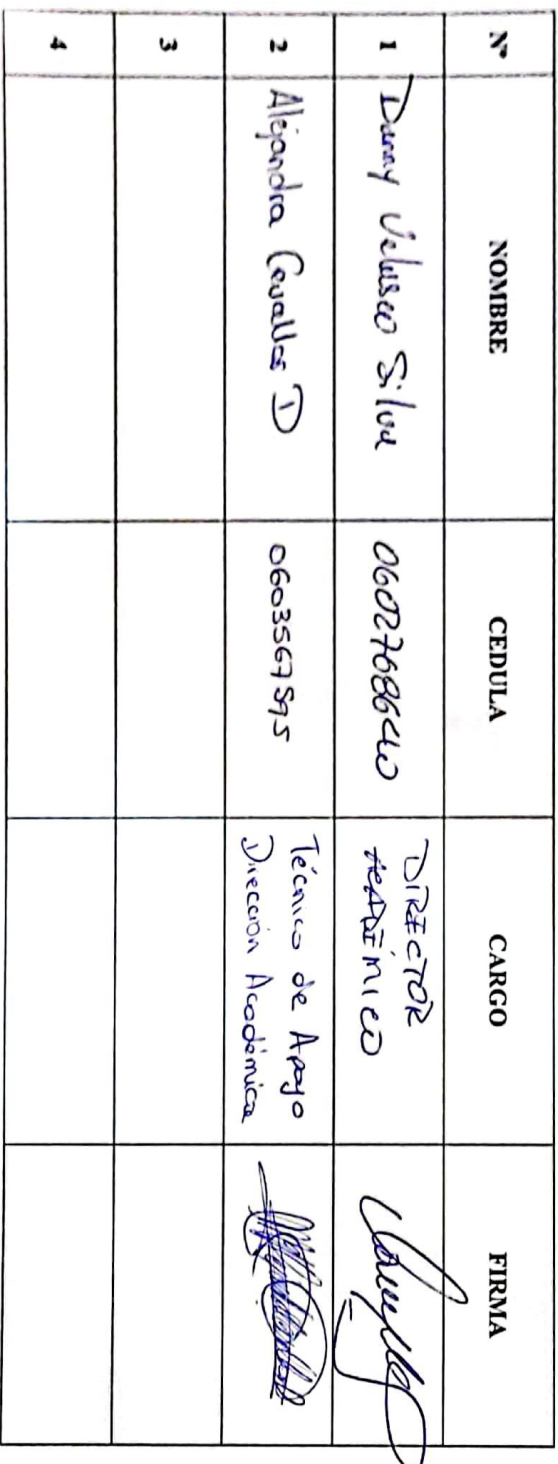 N° NOMBRE CEDULA CARGO FIRMA
1 Danny Velasco Silva 0602768640 DIRECTOR
ACADÉMICO
2 Alejandra Cevallos D 0603567595 Técnico de Apoyo
Dirección Académica
3
4